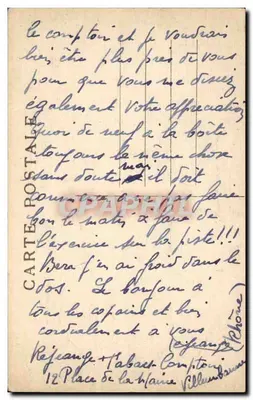 le comptoir et je voudrais
bien être plus près de vous
pour que vous me disiez
également votre appréciation
Quoi de neuf à la boîte
toujours la même chose
sans doute mais il doit
commencer à faire
bon le matin à faire de
l'exercice sur la piste!!!
Brr j'en ai froid dans le
dos. Le bonjour à
tous les copains et bien
cordialement à vous
Tabac Comptoir
12 Place de la Mairie Villeurbanne
(Rhône)
CARTE POSTALE